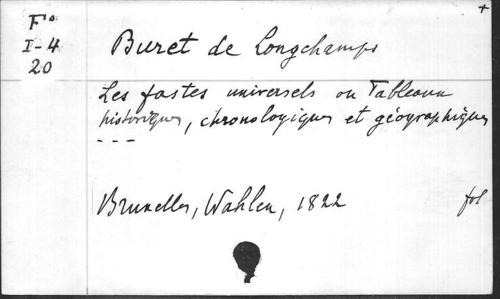 F°
I-4
20
+
Buret de Longchamps
Les fastes universels ou Tableaux
historiques, chronologiques et géographiques
- - -
Bruxelles, Wahlen, 1822
fol